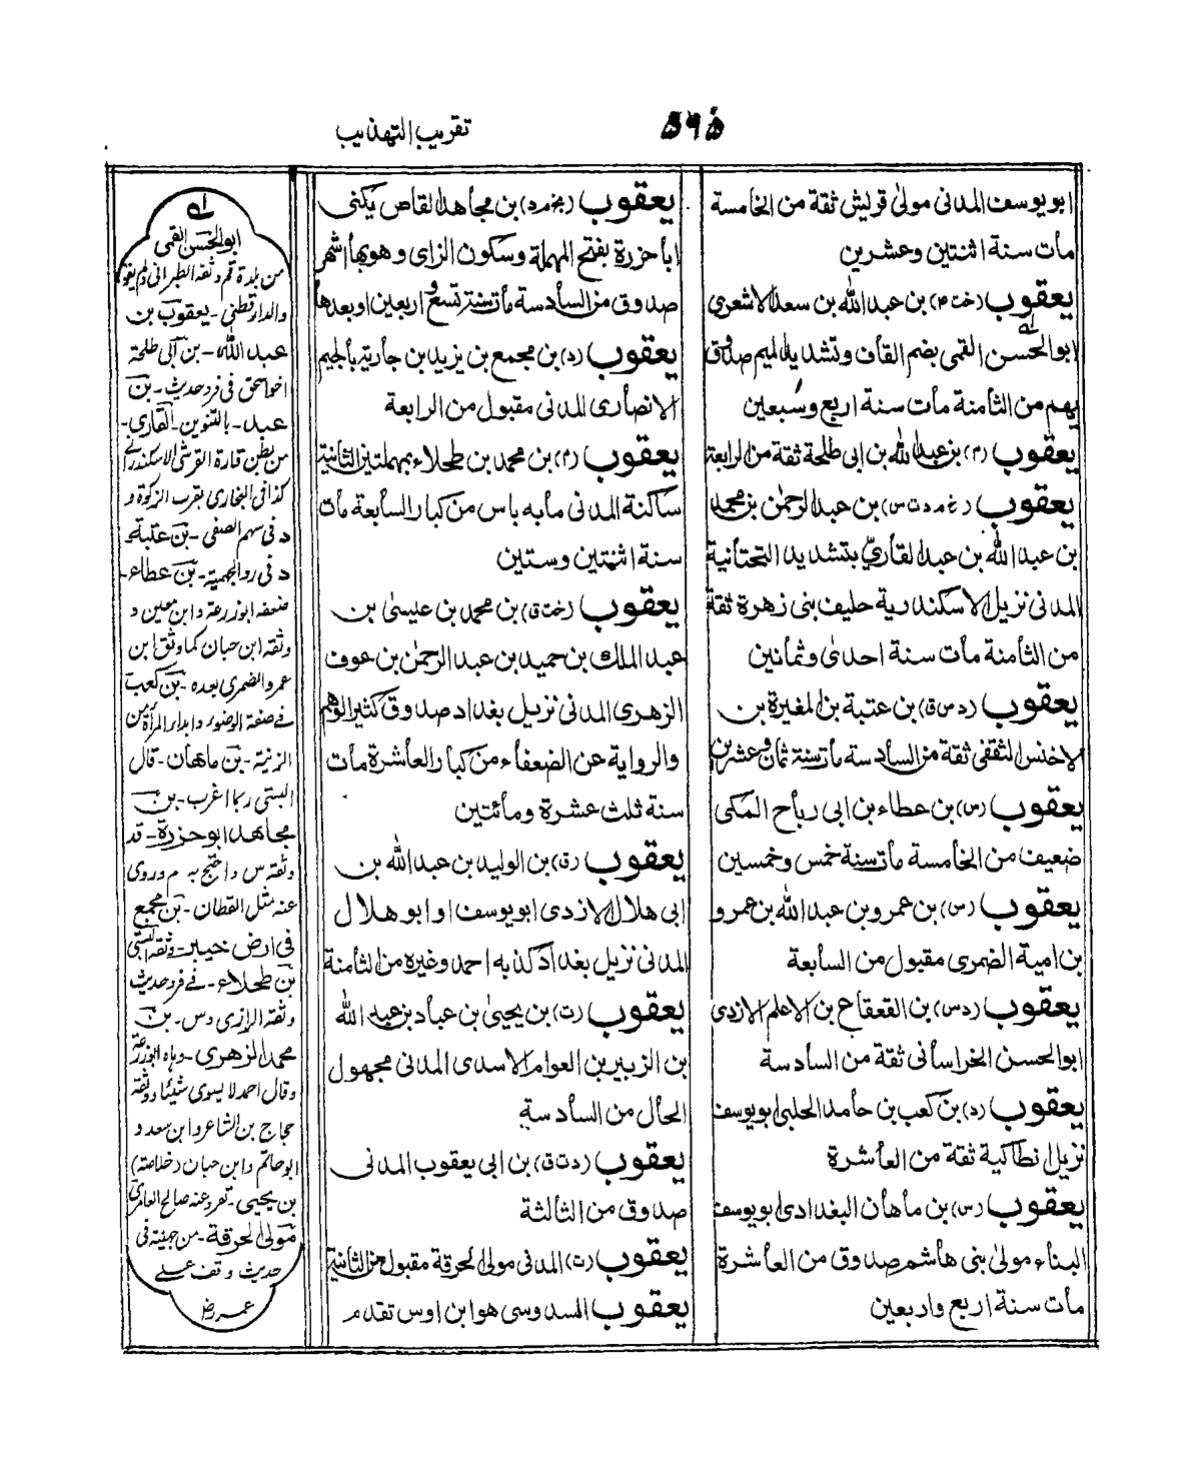 تقريب التهذيب
٥٦٥
ابويوسف المدنى مولىٰ قريش ثقة من الخامسة
مات سنة اثنتين وعشرين
يعقوب (خت م) بن عبدالله بن سعد الاشعرى
ابوالحسن القمى بضم القاف وتشديد الميم صدوق
يهم من الثامنة مات سنة اربع وسبعين
يعقوب (م) بن عبدالله بن ابى طلحة ثقة من الرابعة
يعقوب (خ م د ت س) بن عبدالرحمٰن بن محمد
بن عبدالله بن عبدالقارىّ بتشديد التحتانية
المدنى نزيل الاسكندرية حليف بنى زهرة ثقة
من الثامنة مات سنة احدىٰ وثمانين
يعقوب (د س ق) بن عتبة بن المغيرة بن
الاخنس الثقفى ثقة من السادسة مات سنة ثمان وعشرين
يعقوب (س) بن عطاء بن ابى رباح المكى
ضعيف من الخامسة مات سنة خمس وخمسين
يعقوب (س) بن عمرو بن عبدالله بن عمرو
بن امية الضمرى مقبول من السابعة
يعقوب (د س) بن القعقاع بن الاعلم الازدى
ابوالحسن الخراسانى ثقة من السادسة
يعقوب (د) بن كعب بن حامد الحلبى ابويوسف
نزيل انطاكية ثقة من العاشرة
يعقوب (س) بن ماهان البغدادى ابويوسف
البناء مولىٰ بنى هاشم صدوق من العاشرة
مات سنة اربع واربعين
يعقوب (بخ م د) بن مجاهد القاص يكنى
اباحزرة بفتح المهملة وسكون الزاى وهوبها اشهر
صدوق من السادسة مات سنة تسع و اربعين اوبعدها
يعقوب (د) بن مجمع بن يزيد بن جارية بالجيم
الانصارى المدنى مقبول من الرابعة
يعقوب (م) بن محمد بن طحلاء بمهملتين الثانية
ساكنة المدنى مابه باس من كبار السابعة مات
سنة اثنتين وستين
يعقوب (خت ق) بن محمد بن عيسىٰ بن
عبدالملك بن حميد بن عبدالرحمٰن بن عوف
الزهرى المدنى نزيل بغداد صدوق كثير الوهم
والرواية عن الضعفاء من كبار العاشرة مات
سنة ثلث عشرة ومائتين
يعقوب (ق) بن الوليد بن عبدالله بن
ابى هلال الازدى ابويوسف او ابوهلال
المدنى نزيل بغداد كذبه احمد وغيره من الثامنة
يعقوب (ت) بن يحيىٰ بن عباد بن عبدالله
بن الزبير بن العوام الاسدى المدنى مجهول
الحال من السادسة
يعقوب (د ت ق) بن ابى يعقوب المدنى
صدوق من الثالثة
يعقوب (ت) المدنى مولى الحرقة مقبول من الثانية
يعقوب السدوسى هوابن اوس تقدم
له
ابوالحسن القمى
من بلدة قم وثقه الطبرانى ولم يقو
والدارقطنى - يعقوب بن
عبدالله - بن ابى طلحة
اخواسحق فى فرد حديث - بن
عبد - بالتنوين - القارى -
من بطن قارة القرشى الاسكندرانى
كذا فى البخارى بقرب الزكوة و
د فى سهم الصفى - بن عتبة
د فى ردالجهمية - بن عطاء -
ضعفه ابوزرعة وابن معين و
وثقه ابن حبان كما وثق ابن
عمرو الضمرى بعده - بن كعب
فے صفة الوضوء وابدار المرأة من
الزنية - بن ماهان - قال
البستى ربما اغرب - بن
مجاهد ابوحزرة - قد
وثقه س واحتج به م وروى
عنه مثل القطان - بن مجمع
فى ارض خيبر - وثقه البستى
بن طحلاء - فے فرد حديث
وثقه الرازى دس - بن
محمد الزهرى - وهاه ابوزرعة
وقال احمد لا يسوى شيئا ووثقه
حجاج بن الشاعر وابن سعد و
ابوحاتم وابن حبان (خلاصة)
بن يحيى - تفرد عنه صالح العامرى
مولى الحرقة - من جهينة فى
حديث وقف على
عمر رض